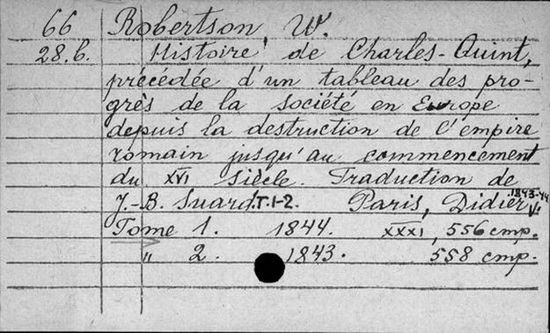 66 Robertson, W.
28.6. Histoire de Charles-Quint,
précédée d'un tableau des pro-
grès de la société en Europe
depuis la destruction de l'empire
romain jusqu'au commencement
du XVI siècle. Traduction de
J.-B. Suard. T.1-2. Paris, Didier, 1843-44
Tome 1. 1844. XXXI, 556 стр.
" 2. 1843. 558 стр.